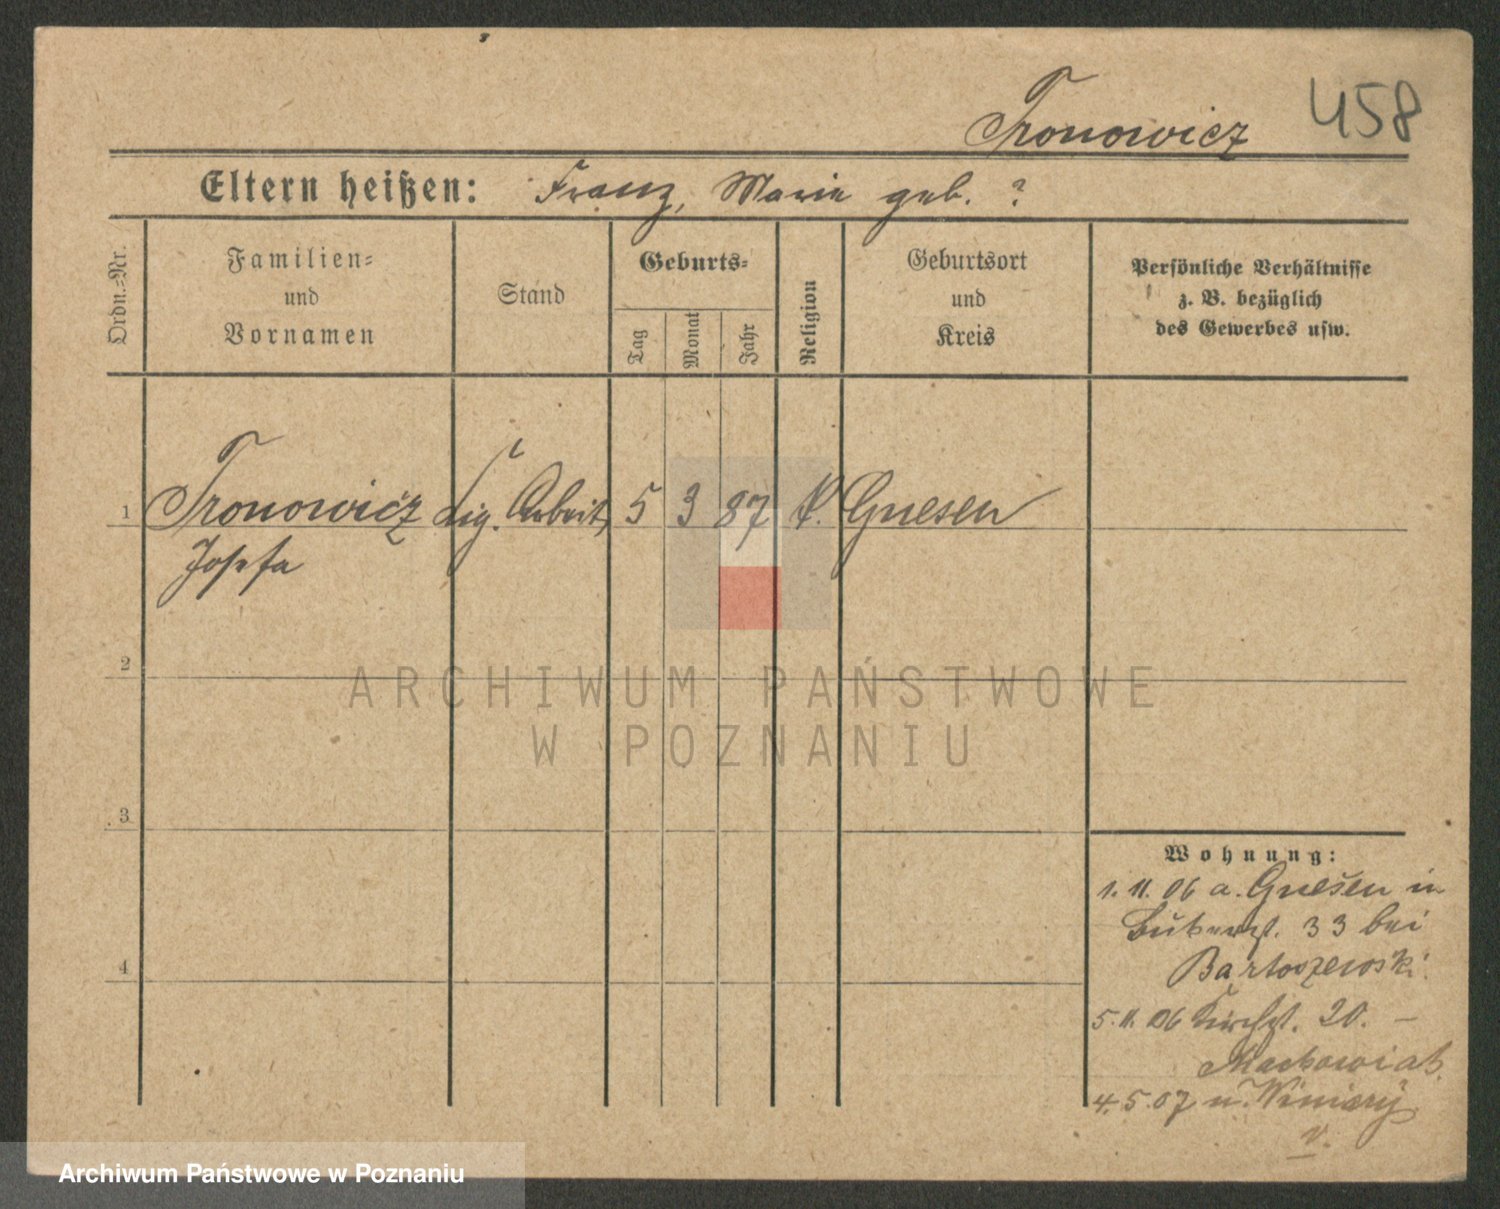 Tronowicz 458
Eltern heißen: Franz, Marie geb. ?
Ordn.-Nr.
Familien-
und
Vornamen
Stand
Geburts-
Tag
Monat
Jahr
Religion
Geburtsort
und
Kreis
Persönliche Verhältnisse
z. B. bezüglich
des Gewerbes usw.
1 Tronowicz Zig. Arbeit. 5 3 87 k. Gnesen
Josefa
2
ARCHIWUM PAŃSTWOWE
W POZNANIU
3
Wohnung:
1. 11. 06 a. Gnesen in
Bukerst. 33 bei
Bartoszewski.
4
5. 11. 06 Kirchst. 20. –
Mackowiak.
4. 5. 07 n. Winiary
v.
Archiwum Państwowe w Poznaniu